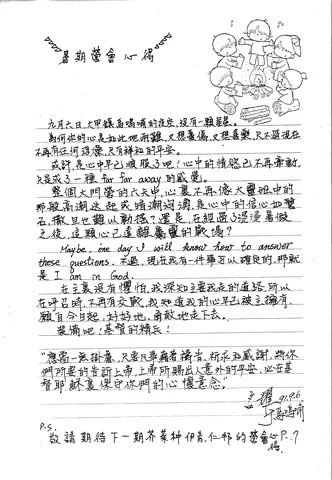 暑期營會心得
九月六日,大甲鎮高鳴晴的夜空,沒有一顆星星。
為何你的心是如此地兩難,又想憂傷,又想喜樂,只不過現在
不再有任何波瀾,只有祥和的平安。
或許是心中早已順服了吧!心中的情慾已不再牽動,
只是成了一種 far far away 的感覺。
整個大門營的六天中,心裏不再像大靈班中的
那般高潮迭起
是心中的信心如磐石
撒旦也難以動搖?還是,在經過了漫漫暑假
之後,這顆心已遠離屬靈的戰場?
Maybe, one day I will know how to answer
these questions. 不過,現在我有一件事可以確定的,那就
是 I am in God.
在主裏沒有懼怕,我深知主要我走的道路,所以
在呼召時,不再有交戰,我知道我的心早已被主擁有,
願自今日起,好好地、勇敢地走下去。
裝備吧!基督的精兵!
“應當一無掛慮,只要凡事藉著禱告、祈求和感謝,將你
們所要的告訴上帝,上帝所賜出人意外的平安,必在基
督耶穌裏保守你們的心懷意念。”
91.9.6
P.S.
敬請期待下一期芥菜种 伊甸.仁邦的營會心得 P.7